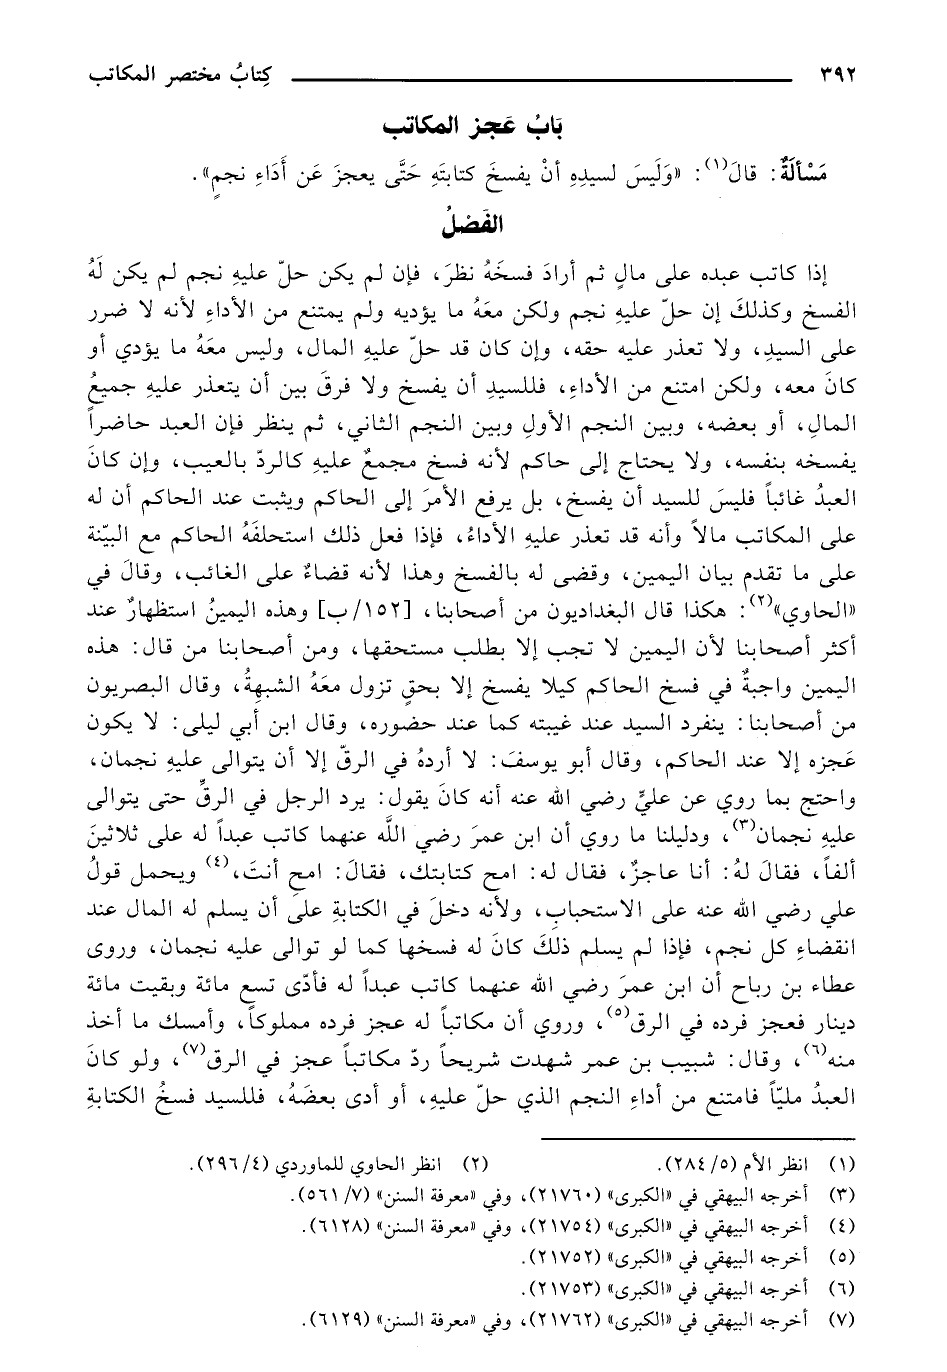 ٣٩٢ كِتابُ مختصر المكاتب
بَابُ عَجز المكاتب
مَسْألَةٌ: قالَ(١): «وَلَيسَ لسيدِهِ أنْ يفسخَ كتابتَهِ حَتَّى يعجزَ عَن أَدَاءِ نجمٍ».
الفَصْلُ
إذا كاتب عبده على مالٍ ثم أرادَ فسخَهُ نظرَ، فإن لم يكن حلّ عليهِ نجم لم يكن لَهُ
الفسخ وكذلكَ إن حلّ عليهِ نجم ولكن معَهُ ما يؤديه ولم يمتنع من الأداءِ لأنه لا ضرر
على السيدِ، ولا تعذر عليه حقه، وإن كان قد حلّ عليهِ المال، وليس معَهُ ما يؤدي أو
كانَ معه، ولكن امتنع من الأداءِ، فللسيدِ أن يفسخ ولا فرقَ بين أن يتعذر عليهِ جميعُ
المالِ، أو بعضه، وبين النجم الأولِ وبين النجم الثاني، ثم ينظر فإن العبد حاضراً
يفسخه بنفسه، ولا يحتاج إلى حاكم لأنه فسخ مجمعٌ عليهِ كالردّ بالعيب، وإن كانَ
العبدُ غائباً فليسَ للسيد أن يفسخ، بل يرفع الأمرَ إلى الحاكم ويثبت عند الحاكم أن له
على المكاتب مالاً وأنه قد تعذر عليهِ الأداءُ، فإذا فعل ذلك استحلفَهُ الحاكم مع البيّنة
على ما تقدم بيان اليمين، وقضى له بالفسخ وهذا لأنه قضاءٌ على الغائب، وقالَ في
«الحاوي»(٢): هكذا قال البغداديون من أصحابنا، [١٥٢/ ب] وهذه اليمينُ استظهارٌ عند
أكثر أصحابنا لأن اليمين لا تجب إلا بطلب مستحقها، ومن أصحابنا من قال: هذه
اليمين واجبةٌ في فسخ الحاكم كيلا يفسخ إلا بحقٍ تزول معَهُ الشبهةُ، وقال البصريون
من أصحابنا: ينفرد السيد عند غيبته كما عند حضوره، وقال ابن أبي ليلى: لا يكون
عَجزه إلا عند الحاكم، وقال أبو يوسفَ: لا أردهُ في الرقّ إلا أن يتوالى عليهِ نجمان،
واحتج بما روي عن عليٍّ رضي الله عنه أنه كانَ يقول: يرد الرجل في الرقِّ حتى يتوالى
عليهِ نجمان(٣)، ودليلنا ما روي أن ابن عمرَ رضي اللَّه عنهما كاتب عبداً له على ثلاثينَ
ألفاً، فقالَ لهُ: أنا عاجزٌ، فقال له: امح كتابتك، فقالَ: امح أنتَ،(٤) ويحمل قولُ
علي رضي الله عنه على الاستحبابِ، ولأنه دخلَ في الكتابةِ على أن يسلم له المال عند
انقضاءِ كل نجم، فإذا لم يسلم ذلكَ كانَ له فسخها كما لو توالى عليه نجمان، وروى
عطاء بن رباح أن ابن عمرَ رضي الله عنهما كاتب عبداً له فأدّى تسع مائة وبقيت مائة
دينار فعجز فرده في الرق(٥)، وروي أن مكاتباً له عجز فرده مملوكاً، وأمسك ما أخذ
منه(٦)، وقال: شبيب بن عمر شهدت شريحاً ردّ مكاتباً عجز في الرق(٧)، ولو كانَ
العبدُ مليّاً فامتنع من أداءِ النجم الذي حلّ عليهِ، أو أدى بعضَهُ، فللسيد فسخُ الكتابةِ
(١) انظر الأم (٥/ ٢٨٤). (٢) انظر الحاوي للماوردي (٤/ ٢٩٦).
(٣) أخرجه البيهقي في «الكبرى» (٢١٧٦٠)، وفي «معرفة السنن» (٧/ ٥٦١).
(٤) أخرجه البيهقي في «الكبرى» (٢١٧٥٤)، وفي «معرفة السنن» (٦١٢٨).
(٥) أخرجه البيهقي في «الكبرى» (٢١٧٥٢).
(٦) أخرجه البيهقي في «الكبرى» (٢١٧٥٣).
(٧) أخرجه البيهقي في «الكبرى» (٢١٧٦٢)، وفي «معرفة السنن» (٦١٢٩).